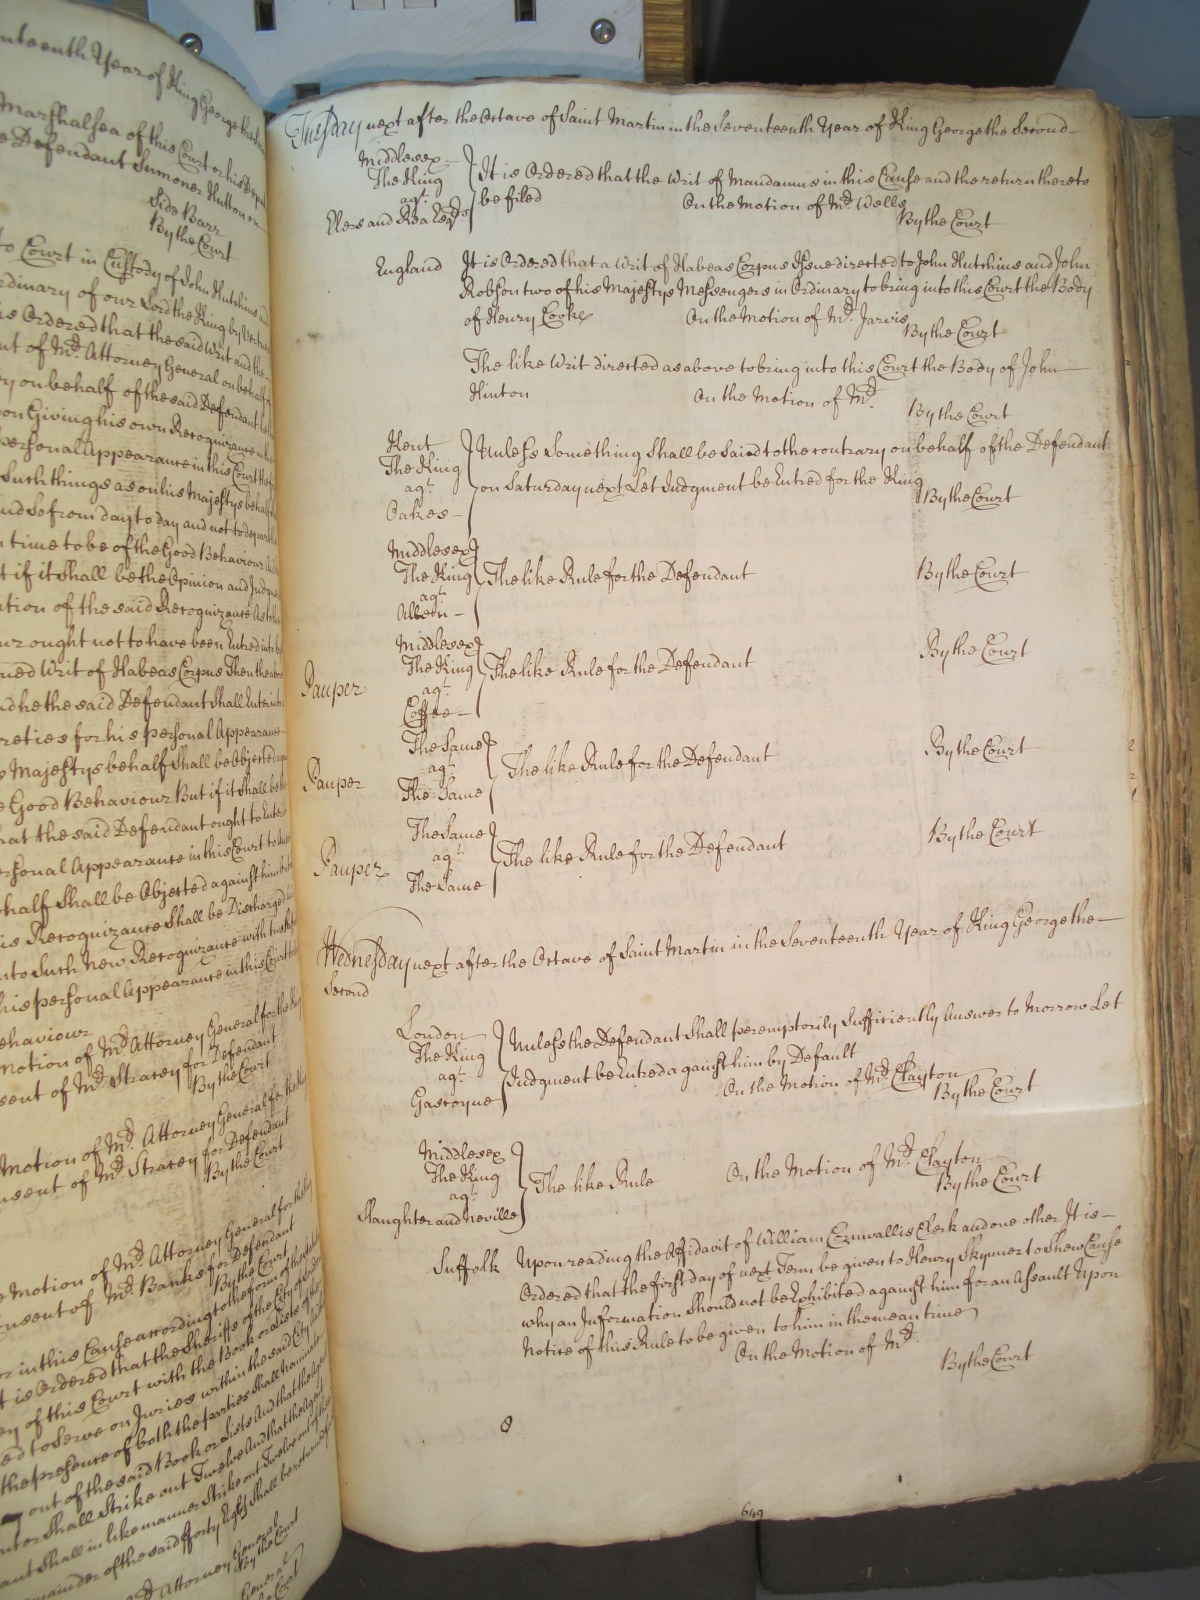 nteenth Year of King George the
Marshalsea of this Court or his
Defendant Sumoner Hutton on
Side Barr
By the Court
to Court in Custody of John Hutchins
rdinary of our Lord the King by
is Ordered that the said Writ and the
nt of Mr. Attorney General on behalf
ry on behalf of the said Defendant
on Giving his own Recognizance
personal Appearance in this Court
Such things as on his Majestys behalf
nd so from day to day and not to depart
time to be of the Good Behaviour
t if it shall be the Opinion and
tion of the said Recognizance
our ought not to have been Entred into
ned Writ of Habeas Corpus Then the
nd he the said Defendant shall Enter
reties for his personal Appearance
Majestys behalf shall be Objected
Good Behaviour But if it shall be
hat the said Defendant ought to Enter
rsonal Appearance in this Court to
ehalf shall be Objected against him
is Recognizance shall be Discharged
nto Such New Recognizance with
his personal Appearance in this Court
ehaviour
motion of Mr. Attorney General for the King
sent of Mr. Stracey for Defendant
By the Court
Motion of Mr. Attorney General for the
nsent of Mr. Stracey for Defendant
By the Court
Motion of Mr. Attorney General for the
onsent of Mr. Banks for Defendant
By the Court
r in this Cause according to the form of the
t is Ordered that the Sheriffs of the City of
ey of this Court with the Book or Lists of
ed to Serve on Juries within the said City
the presence of both the parties shall
out of the said Book or Lists And that the
shall Strike out Twelve And that the Agent
ant shall in like manner Strike out Twelve
mainder of the said fforty Eight shall be returned
Attorney General
By the Court
General
Tuesday next after the Octave of Saint Martin in the Seventeenth Year of King George the Second
Middlesex
The King
agt.
Elers and Rea Esqrs
It is Ordered that the Writ of Mandamus in this Cause and the return thereto
be filed On the Motion of Mr. Wells
By the Court
England It is Ordered that a Writ of Habeas Corpus Issue directed to John Hutchins and John
Robson two of his Majestys Messengers in Ordinary to bring into this Court the Body
of Henry Cooke On the Motion of Mr. Jarvis
By the Court
The like Writ directed as above to bring into this Court the Body of John
Hinton On the Motion of Mr.
By the Court
Kent
The King
agt.
Oakes
Unless Something shall be said to the contrary on behalf of the Defendant
on Saturday next Let Judgment be Entred for the King
By the Court
Middlesex
The King
agt.
The like Rule for the Defendant By the Court
Pauper
Middlesex
The King
agt.
Coffee
The like Rule for the Defendant By the Court
Pauper
The Same
agt.
The Same
The like Rule for the Defendant By the Court
Pauper
The Same
agt.
The Same
The like Rule for the Defendant By the Court
Wednesday next after the Octave of Saint Martin in the Seventeenth Year of King George the
Second
London
The King
agt.
Gascoyne
Unless the Defendant shall peremptorily Sufficiently Answer to Morrow Let
Judgment be Entred against him by Default
On the Motion of Mr. Clayton
By the Court
Middlesex
The King
agt.
Slaughter and Neville
The like Rule On the Motion of Mr. Clayton
By the Court
Suffolk Upon reading the Affidavit of William Cornwallis Clerk and one other It is
Ordered that the first day of next Term be given to Henry Skynner to Shew Cause
why an Information should not be Exhibited against him for an Assault Upon
Notice of this Rule to be given to him in the mean time
On the Motion of Mr.
By the Court
8
649